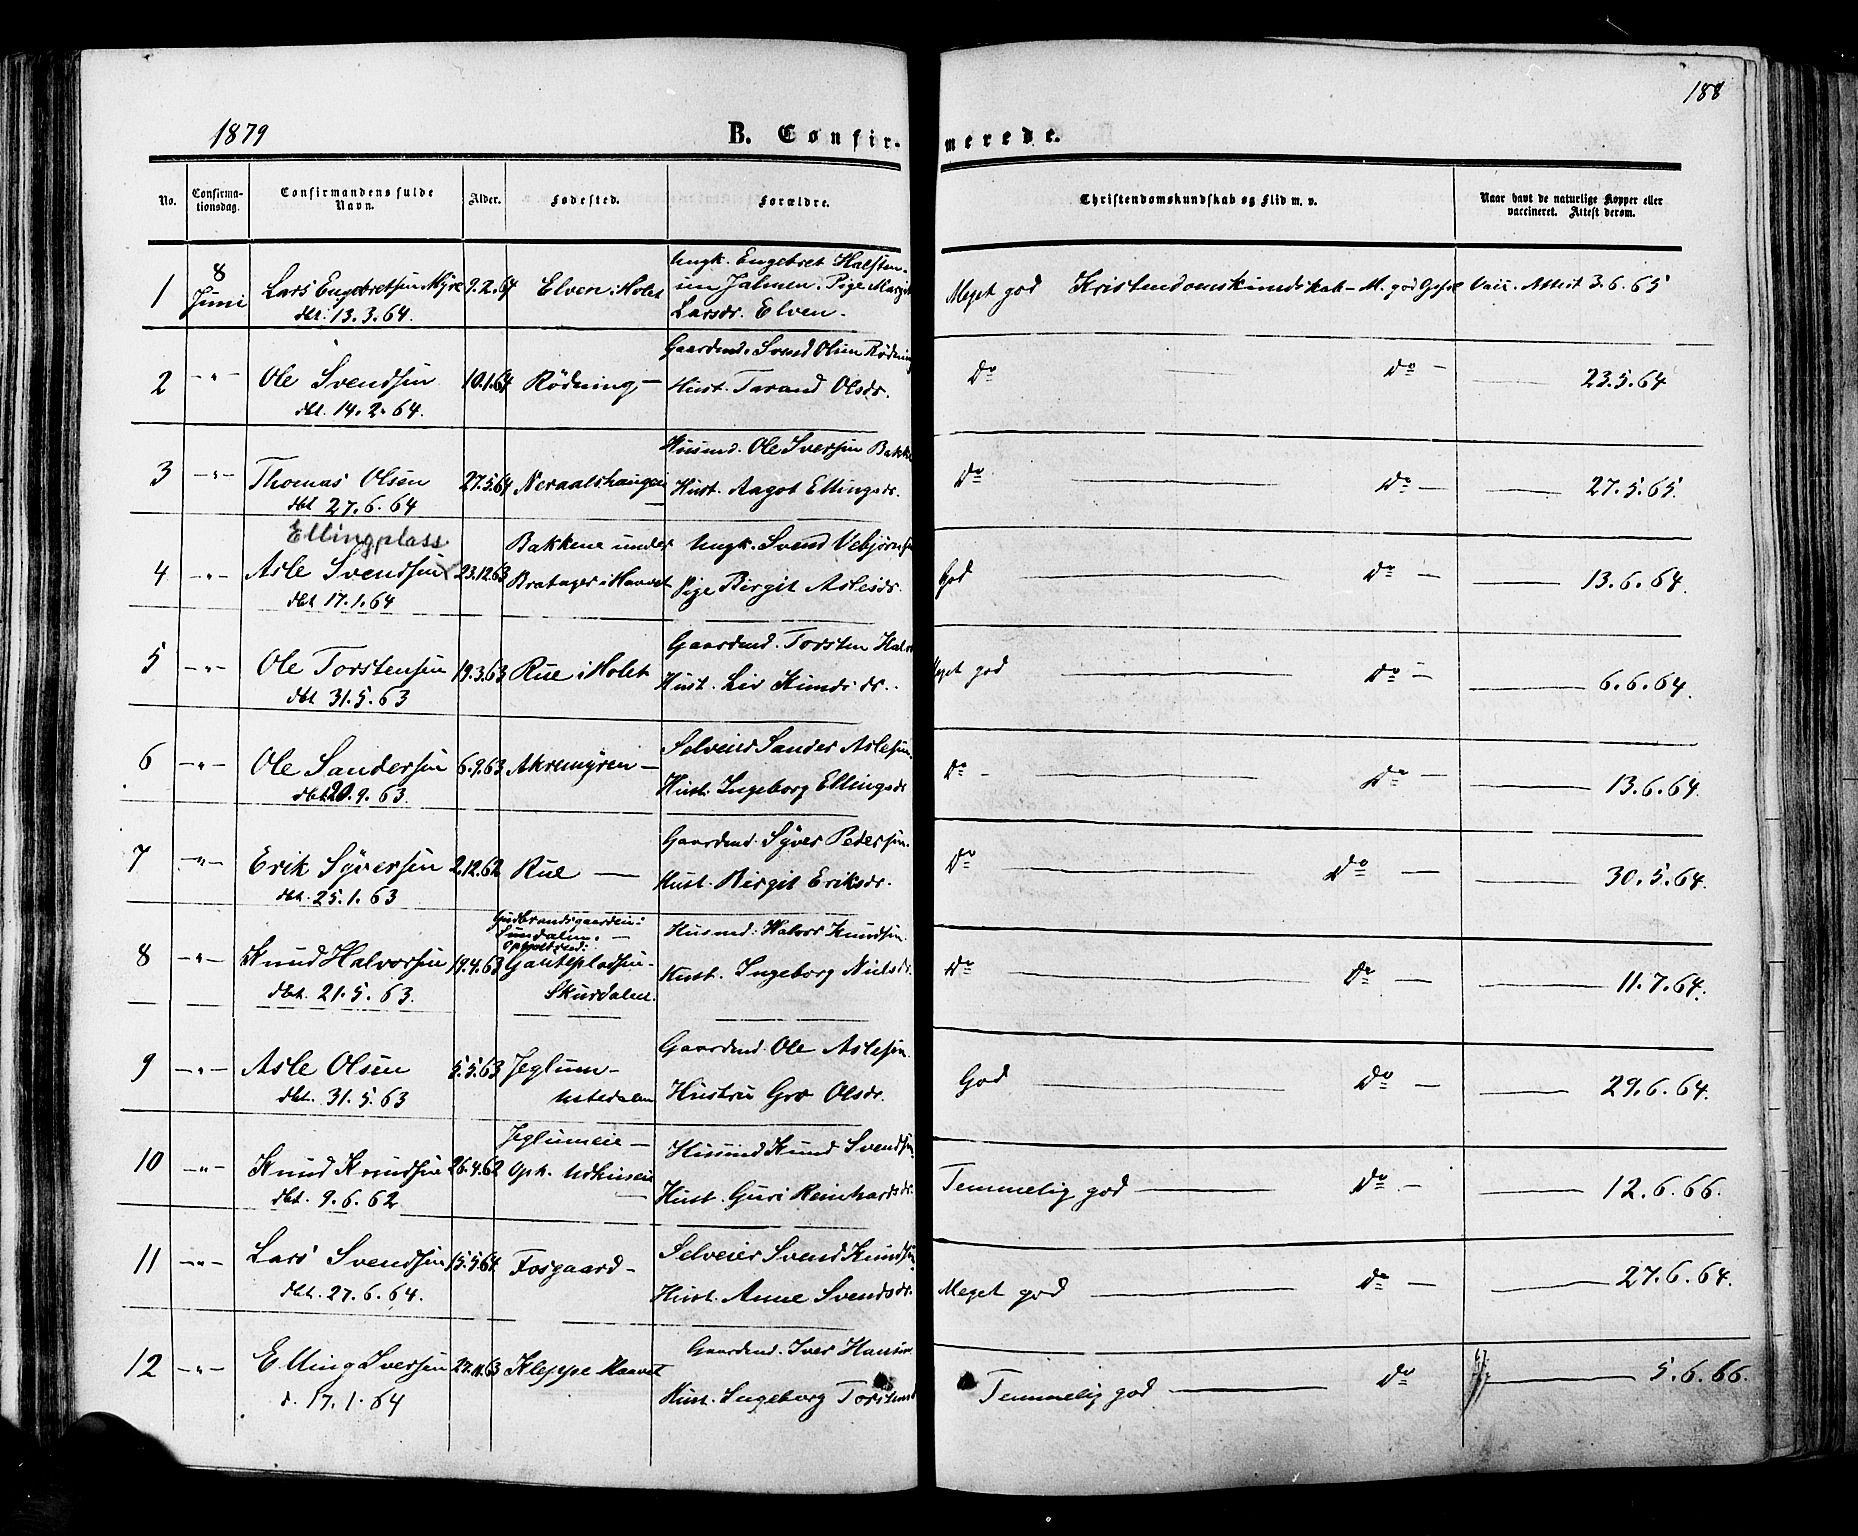 188
1879
B. Confir-
merede.
No.
Confirma-
tionsdag.
Confirmandens fulde
Navn.
Alder.
Fødested.
Forældre.
Christendomskundskab og Flid m. v.
Naar havt de naturlige Kopper eller
vaccineret. Attest derom.
1
8
Juni
Lars Engebretsen Myre
dbt. 13.3.64.
9.2.64
Elven i Holet
Ungk. Engebret Halsten-
Pige Margit
Larsdr. Elven.
Meget god Kristendomskundskab - M. god
Vacc. Attest 3.6.65
2
-"-
Ole Svendsen
dbt. 14.2.64.
10.1.64
Rødning -
Gaardmd. Svend Olsen Rødning
Hust. Tarand Olsdr.
Do
Do -
23.5.64
3
-"-
Thomas Olsen
dbt 27.6.64
27.5.64
Neraalshaugen
Husmd. Ole Iversen Bakke
Hust. Aagot Ellingsdr.
Do
Do -
27.5.65.
4
-"-
Ellingplass
Asle Svendsen
dbt 17.1.64
23.12.63
Bakkene under
Bratager i Haavet
Ungk. Svend Vebjørns
Pige Birgit Aslesdr.
God
Do -
13.6.64
5
-"-
Ole Torstensen
dbt 31.5.63
19.3.63
Rue i Holet
Gaardmd. Torsten Halv
Hust. Liv Knudsdr.
Meget god
Do -
6.6.64.
6
-"-
Ole Sandersen
dbt 20.9.63.
6.9.63
Akremyren -
Selveier Sander Aslesen
Hust. Ingeborg Ellingsdr
Do -
Do -
13.6.64.
7
-"-
Erik Syversen
dbt. 25.1.63
2.12.62
Rue -
Gaardmd. Syver Pedersen.
Hust. Birgit Eriksdr.
Do
Do -
30.5.64.
8
-"-
Knud Halvorsen
dbt. 21.5.63.
19.4.63
Gudbrandsgaarden i
Sundalen.
Gautepladsen
Skurdalen.
Husmd. Halvor Knudsen.
Hust. Ingeborg Nielsdr.
Do
Do -
11.7.64.
9
-"-
Asle Olsen
dbt. 31.5.63
5.5.63
Jeglum-
Ustedalen
Gaardmd. Ole Aslesen.
Hustru Gro Olsdr.
God
Do -
29.6.64.
10
-"-
Knud Knudsen
dbt. 9.6.62
26.4.62
Jeglumeie -
Oph. Udhuseie
Husmd Knud Svendsen.
Hust. Guri Reinhardsdr.
Temmelig god
Do -
12.6.66.
11
-"-
Lars Svendsen
dbt. 27.6.64.
15.5.64
Fosgaard -
Selveier Svend Knudsen
Hust. Anne Svendsdr.
Meget god
Do -
27.6.64.
12
-"-
Elling Iversen
d. 17.1.64
27.11.63
Kleppe Haavet
Gaardmd. Iver Hansen.
Hust. Ingeborg Torstensd
Temmelig god
Do
5.6.66.